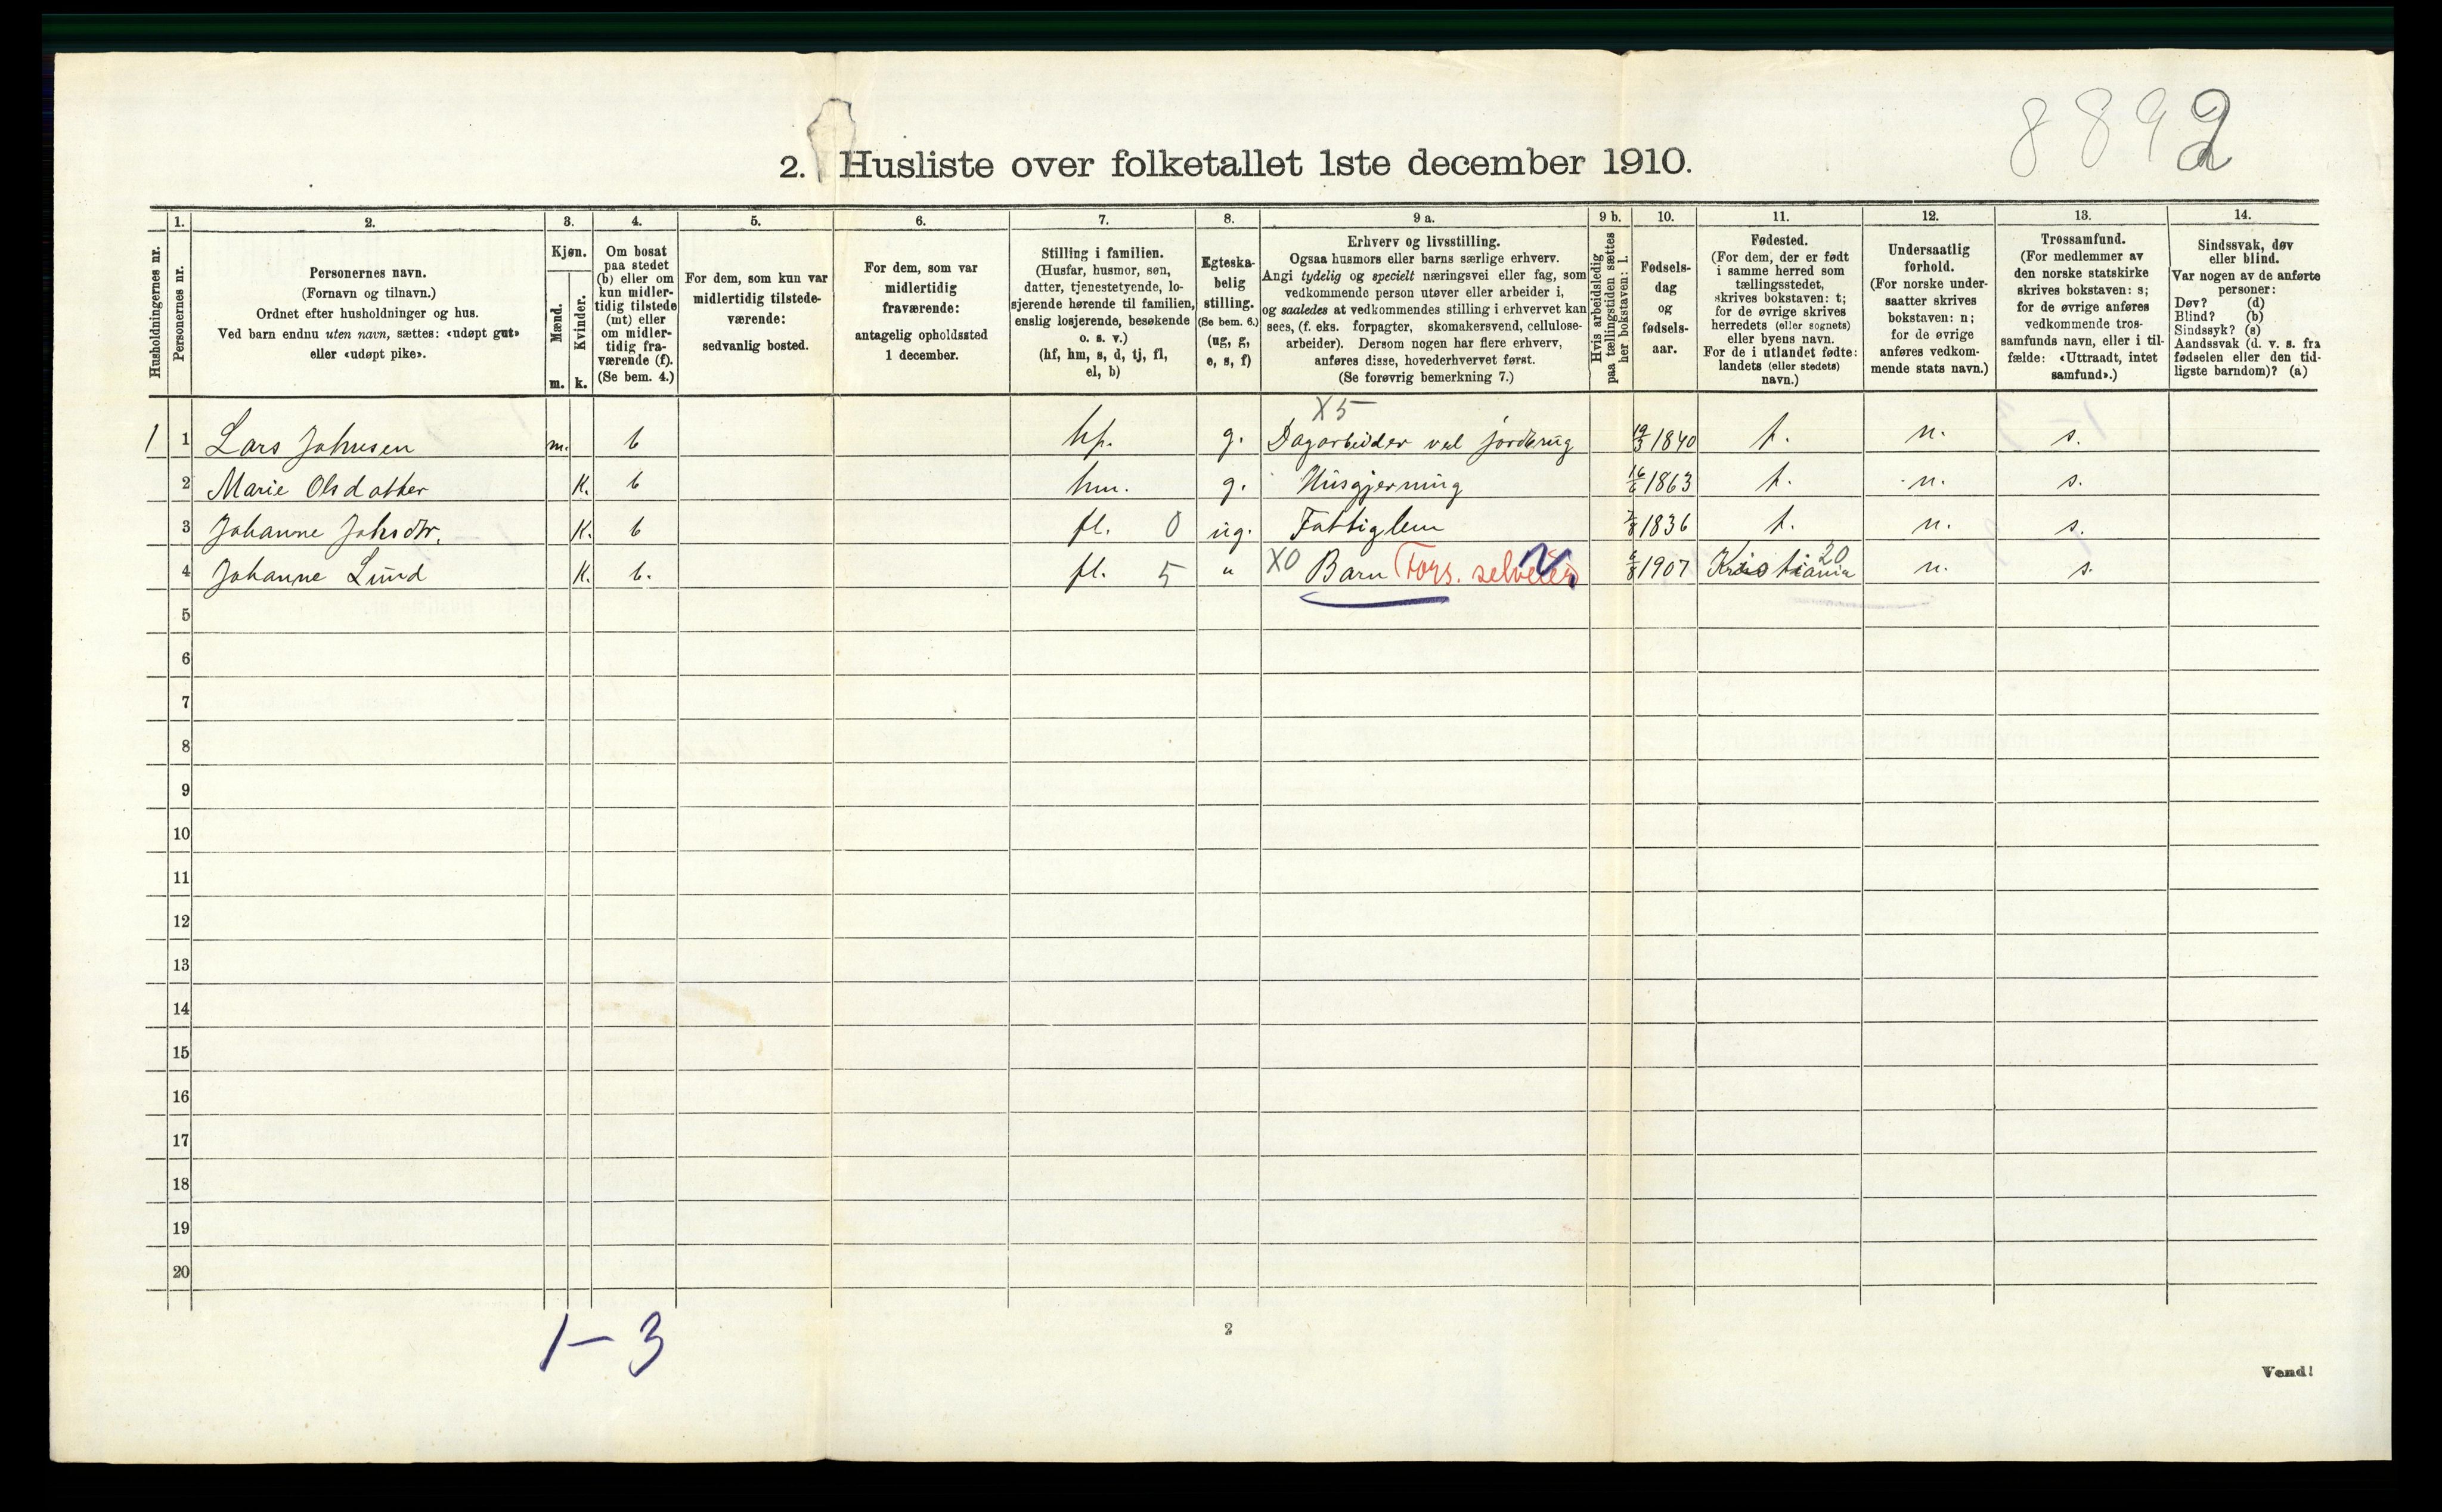 8892
2. Husliste over folketallet 1ste december 1910.
Husholdningernes nr.
1.
Personernes nr.
2.
Personernes navn.
(Fornavn og tilnavn.)
Ordnet efter husholdninger og hus.
Ved barn endnu uten navn, sættes: «udøpt gut»
eller «udøpt pike».
3.
Kjøn.
Mænd.
Kvinder.
m. k.
4.
Om bosat
paa stedet
(b) eller om
kun midler-
tidig tilstede
(mt) eller
om midler-
tidig fra-
værende (f).
(Se bem. 4.)
5.
For dem, som kun var
midlertidig tilstede-
værende:
sedvanlig bosted.
6.
For dem, som var
midlertidig
fraværende:
antagelig opholdssted
1 december.
7.
Stilling i familien.
(Husfar, husmor, søn,
datter, tjenestetyende, lo-
sjerende hørende til familien,
enslig losjerende, besøkende
o. s. v.)
(hf, hm, s, d, tj, fl,
el, b)
8.
Egteska-
belig
stilling.
(Se bem. 6.)
(ug, g,
e, s, f)
9 a.
Erhverv og livsstilling.
Ogsaa husmors eller barns særlige erhverv.
Angi tydelig og specielt næringsvei eller fag, som
vedkommende person utøver eller arbeider i,
og saaledes at vedkommendes stilling i erhvervet kan
sees, (f. eks. forpagter, skomakersvend, cellulose-
arbeider). Dersom nogen har flere erhverv,
anføres disse, hovederhvervet først.
(Se forøvrig bemerkning 7.)
9 b.
Hvis arbeidsledig
paa tællingstiden sættes
her bokstaven: l.
10.
Fødsels-
dag
og
fødsels-
aar.
11.
Fødested.
(For dem, der er født
i samme herred som
tællingsstedet,
skrives bokstaven: t;
for de øvrige skrives
herredets (eller sognets)
eller byens navn.
For de i utlandet fødte:
landets (eller stedets)
navn.)
12.
Undersaatlig
forhold.
(For norske under-
saatter skrives
bokstaven: n;
for de øvrige
anføres vedkom-
mende stats navn.)
13.
Trossamfund.
(For medlemmer av
den norske statskirke
skrives bokstaven: s;
for de øvrige anføres
vedkommende tros-
samfunds navn, eller i til-
fælde: «Uttraadt, intet
samfund».)
14.
Sindssvak, døv
eller blind.
Var nogen av de anførte
personer:
Døv? (d)
Blind? (b)
Sindssyk? (s)
Aandssvak (d. v. s. fra
fødselen eller den tid-
ligste barndom)? (a)
X5
1 1 Lars Johnsen m. b hf. g. Dagarbeider ved jordbrug 19/3 1840 t. n. s.
2 Marie Olsdatter K. b hm. g. Husgjerning 16/6 1863 t. n. s.
3 Johanne Johsdtr. K. b fl. 0 ug. Fattiglem 7/8 1836 t. n. s.
4 Johanne Lund K. b. fl. 5 " X0 Barn (Fors. selveier 6/8 1907 Kristiania 20 n. s.
5
6
7
8
9
10
11
12
13
14
15
16
17
18
19
20
1 - 3
2
Vend!